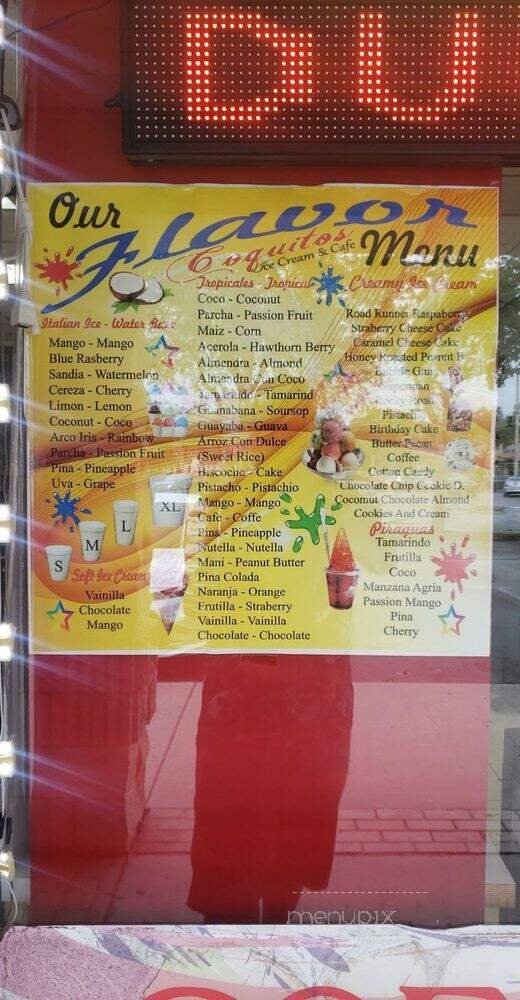 DU
Our
Flavor
Menu
Coquitos
Ice Cream & Cafe
Italian Ice - Water Base
Mango - Mango
Blue Rasberry
Sandia - Watermelon
Cereza - Cherry
Limon - Lemon
Coconut - Coco
Arco Iris - Rainbow
Parcha - Passion Fruit
Pina - Pineapple
Uva - Grape
S
M
L
XL
Soft Ice Cream
Vainilla
Chocolate
Mango
Tropicales - Tropical
Coco - Coconut
Parcha - Passion Fruit
Maiz - Corn
Acerola - Hawthorn Berry
Almendra - Almond
Almendra Con Coco
Tamarindo - Tamarind
Guanabana - Soursop
Guayaba - Guava
Arroz Con Dulce
(Sweet Rice)
Biscocho - Cake
Pistacho - Pistachio
Mango - Mango
Cafe - Coffe
Pina - Pineapple
Nutella - Nutella
Mani - Peanut Butter
Pina Colada
Naranja - Orange
Frutilla - Straberry
Vainilla - Vainilla
Chocolate - Chocolate
Creamy Ice Cream
Road Runner Raspaberry
Straberry Cheese Cake
Caramel Cheese Cake
Honey Roasted Peanut B
Bubble Gum
Superman
Rocky Road
Pistachio
Birthday Cake
Butter Pecan
Coffee
Cotton Candy
Chocolate Chip Cookie D.
Coconut Chocolate Almond
Cookies And Cream
Piraguas
Tamarindo
Frutilla
Coco
Manzana Agria
Passion Mango
Pina
Cherry
menupix